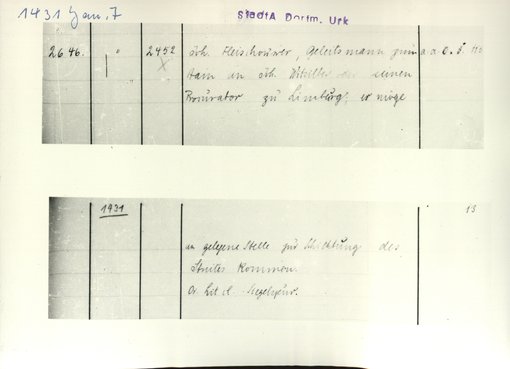 1431 Jan. 7
StadtA Dortm. Urk
2646. " 2452 Joh. Fleischouwer, Geleitsmann zum a. a. O. S. 
Ham an Joh. Witziller seinen
Prokurator zu Limburg; er möge
1931 13
an gelegene Stelle zur Schlichtung des
Streites kommen.
Or. Lit. cl. Siegelspur.